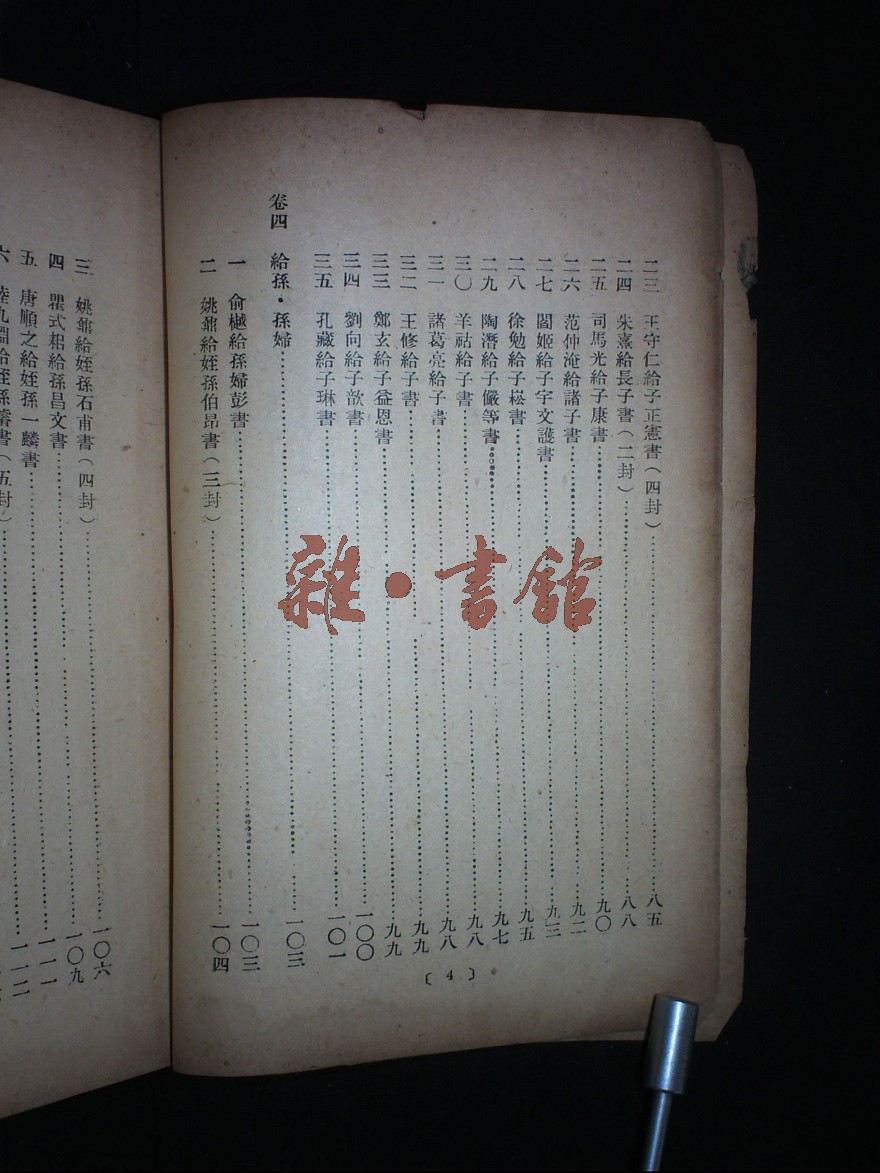 二三 王守仁給子正憲書(四封)……八五
二四 朱熹給長子書(二封)……八八
二五 司馬光給子康書……九〇
二六 范仲淹給諸子書……九二
二七 閻姬給子宇文護書……九三
二八 徐勉給子崧書……九五
二九 陶潛給子儼等書……九七
三〇 羊祜給子書……九八
三一 諸葛亮給子書……九八
三二 王修給子書……九九
三三 鄭玄給子益恩書……九九
三四 劉向給子歆書……一〇〇
三五 孔臧給子琳書……一〇一
卷四 給孫·孫婦……一〇三
一 俞樾給孫婦彭書……一〇三
二 姚鼐給姪孫伯昂書(三封)……一〇四
〔4〕
三 姚鼐給姪孫石甫書(四封)……一〇六
四 瞿式耜給孫昌文書……一〇九
五 唐順之給姪孫一麟書……一一一
六 陸九淵給姪孫濬書(五封)……一一二
雜·書館